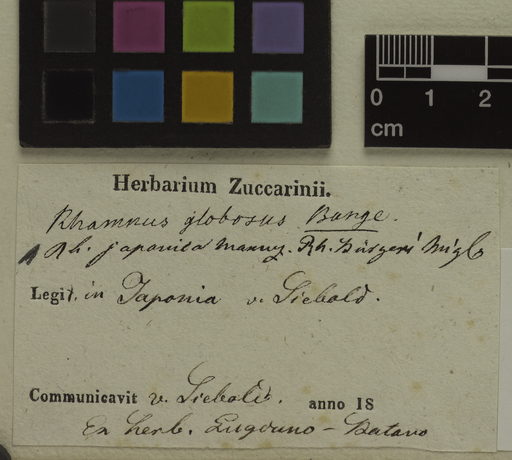 0 1 2
cm
Herbarium Zuccarinii.
Rhamnus globosus Bunge.
Rh. japonica Maxim. Rh. Bürgeri Miq
Legit. in Japonia v. Siebold.
Communicavit v. Siebold. anno 18
Ex herb. Lugduno-Batavo